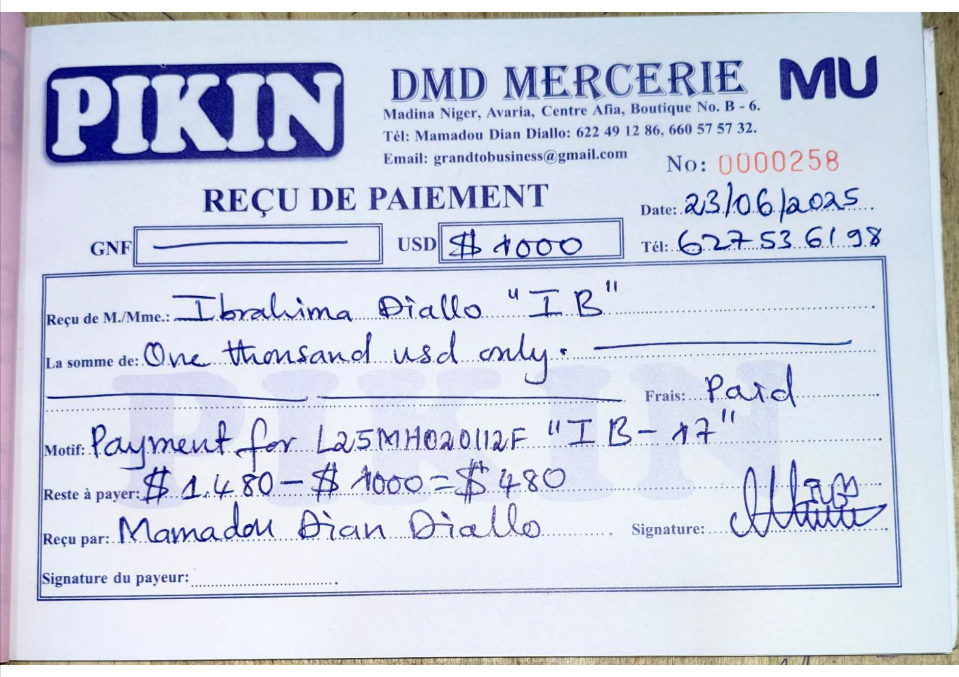 PIKIN
DMD MERCERIE
MU
Madina Niger, Avaria, Centre Afia, Boutique No. B - 6.
Tél: Mamadou Dian Diallo: 622 49 12 86, 660 57 57 32.
Email: grandtobusiness@gmail.com
No: 0000258
REÇU DE PAIEMENT
Date: 23/06/2025
GNF
USD $ 1000
Tél: 627 53 61 98
Reçu de M./Mme.: Ibrahima Diallo "IB"
La somme de: One thousand usd only.
Frais: Paid
Motif: Payment for L25MH020112F "IB-17"
Reste à payer: $ 1.480 - $ 1000 = $ 480
Reçu par: Mamadou Dian Diallo
Signature:
Signature du payeur:
PIKIN